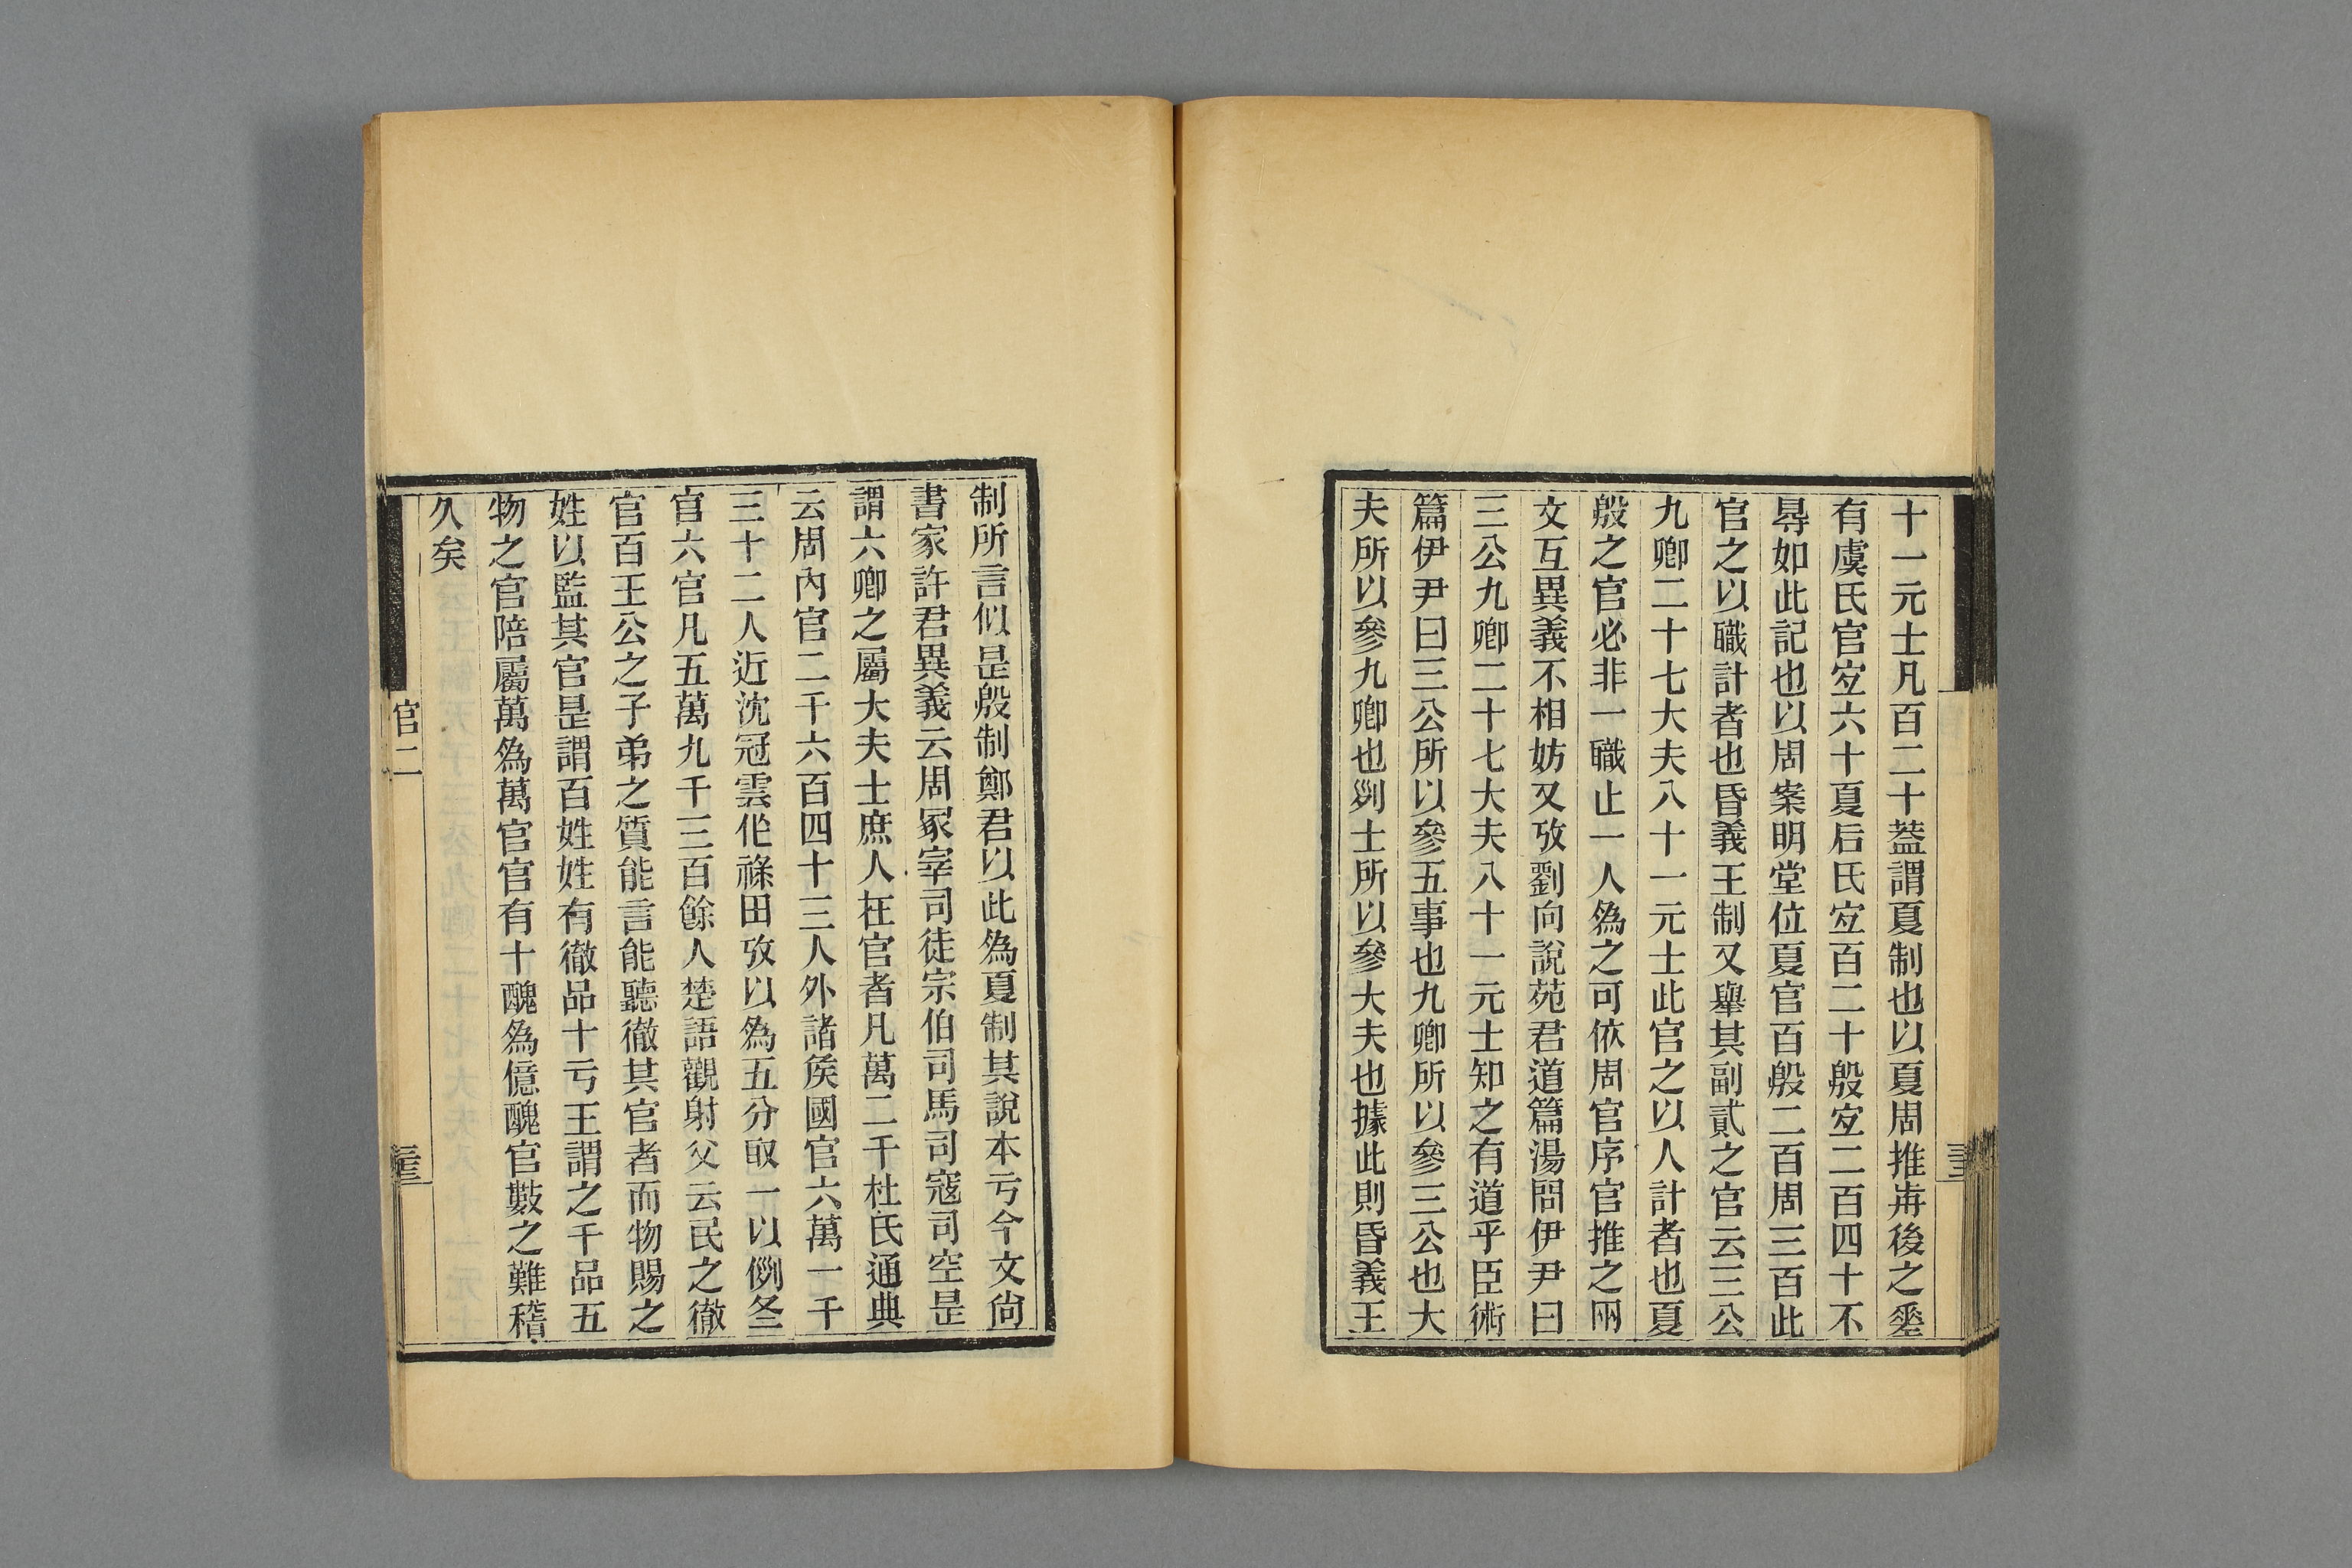 十一元士凡百二十葢謂夏制也以夏周推歬後之𡍮
有虞氏官宐六十夏后氏宐百二十殷宐二百四十不
㝵如此記也以周案明堂位夏官百殷二百周三百此
官之以職計者也昏義王制又舉其副貳之官云三公
九卿二十七大夫八十一元士此官之以人計者也夏
殷之官必非一職止一人爲之可依周官序官推之网
文互異義不相妨又攷劉向說苑君道篇湯問伊尹曰
三公九卿二十七大夫八十一元士知之有道乎臣術
篇伊尹曰三公所以參五事也九卿所以參三公也大
夫所以參九卿也列士所以參大夫也據此則昏義王
制所言似是殷制鄭君以此爲夏制其說本亏今文尙
書家許君異義云周冢宰司徒宗伯司馬司寇司空是
謂六卿之屬大夫士庶人在官者凡萬二千杜氏通典
云周內官二千六百四十三人外諸矦國官六萬一千
三十二人近沈冠雲作祿田攷以爲五分取一以例冬
官六官凡五萬九千三百餘人楚語觀射父云民之徹
官百王公之子弟之質能言能聽徹其官者而物賜之
姓以監其官是謂百姓姓有徹品十亏王謂之千品五
物之官陪屬萬爲萬官官有十醜爲億醜官數之難稽
久矣
官二